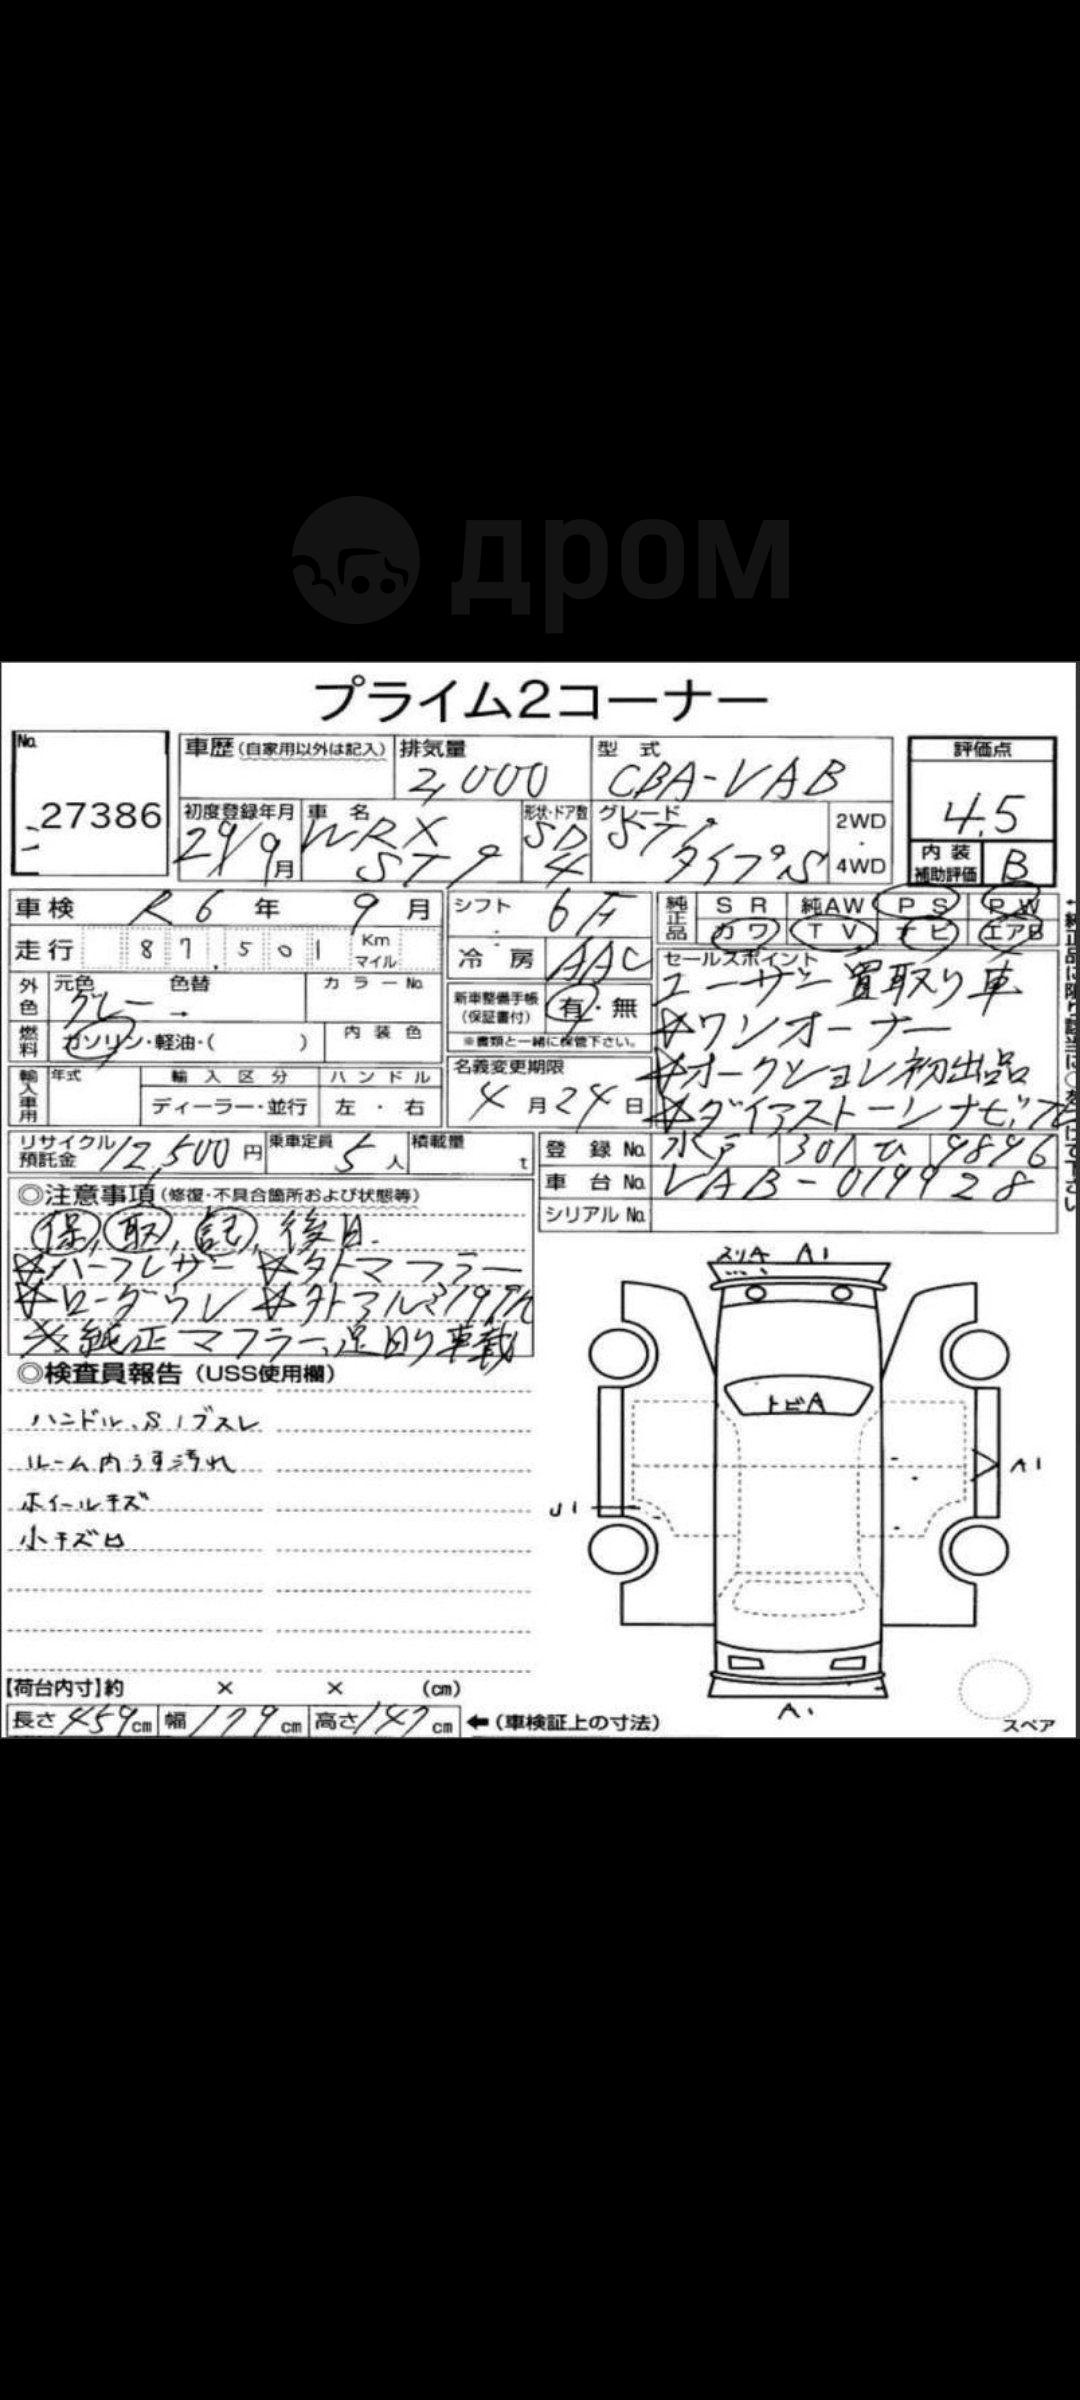 дром
プライム2コーナー
No.
27386
車歴(自家用以外は記入)
排気量
2,000
型式
CBA-VAB
評価点
4.5
内装補助評価
B
初度登録年月
29/9月
車名
WRX
STI
形状・ドア数
SD
4
グレード
STI
タイプS
2WD
・
4WD
車検 R6年 9月
走行 87,501 Km マイル
外色
元色
グレー
色替
→
カラーNo.
燃料
ガソリン・軽油・( )
内装色
輸入車用
年式
輸入区分
ディーラー・並行
ハンドル
左・右
シフト 6F
冷房 AAC
新車整備手帳(保証書付)
有・無
※書類と一緒に保管下さい。
名義変更期限
4月24日
純正品
SR 純AW PS PW
カワ TV ナビ エアB
セールスポイント
ユーザー買取り車
☆ワンオーナー
☆オークション初出品
☆ダイアストーンナビ、
リサイクル預託金 12,500円
乗車定員 5人
積載量 t
登録No. 水戸 301 ひ 9896
車台No. VAB-019928
シリアルNo.
◎注意事項(修復・不具合箇所および状態等)
保、取、記、後日.
☆ハーフレザー ☆外マフラー
☆ローダウン ☆外アルミ19
※純正マフラー、足回り車載
◎検査員報告(USS使用欄)
ハンドル、Sノブスレ
ルーム内うす汚れ
ホイールキズ
小キズ凹
スリA A1
トビA
A1
U1
A1
スペア
【荷台内寸】約 × × (cm)
長さ 459cm 幅 179cm 高さ 147cm ←(車検証上の寸法)